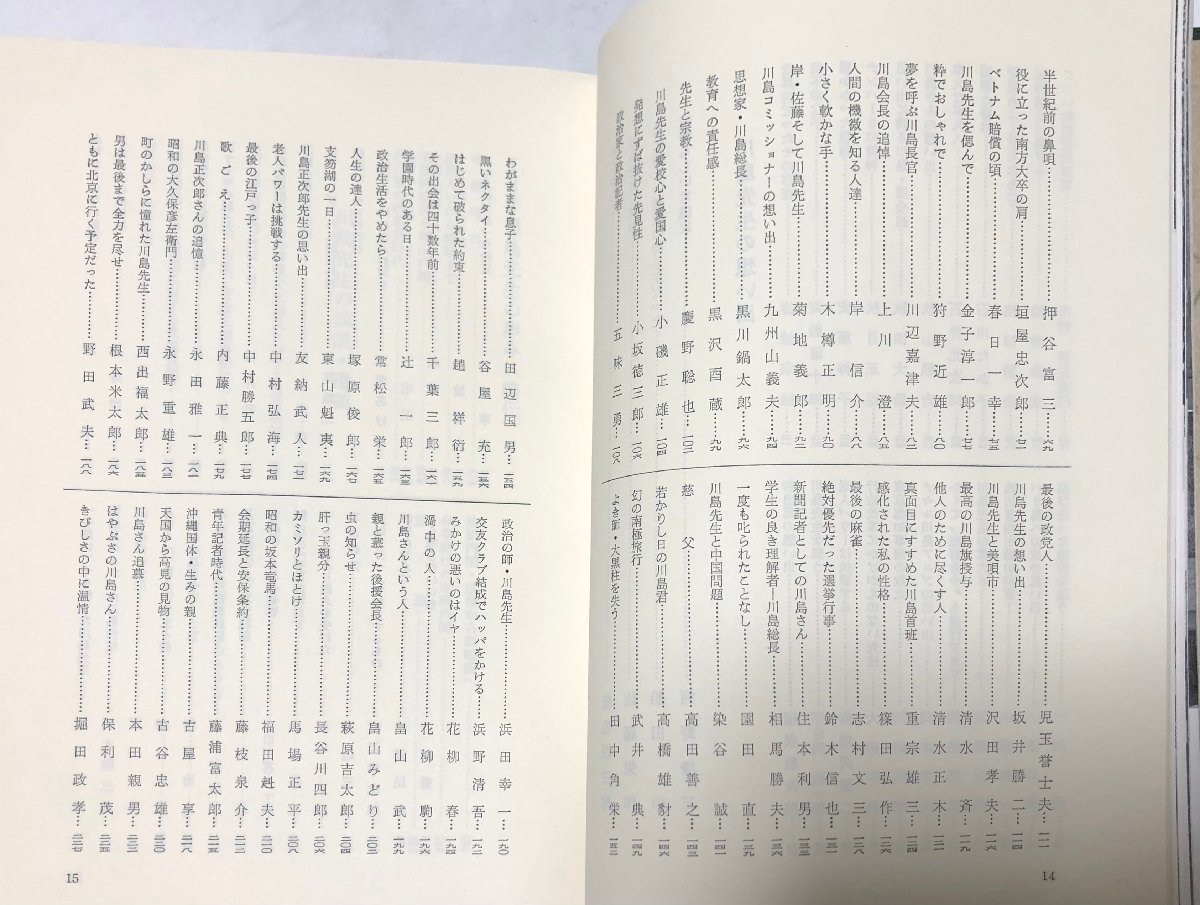 半世紀前の鼻唄……押谷富三…六九
役に立った南方大卒の肩……垣屋忠次郎…七一
ベトナム賠償の頃……春日一幸…七五
川島先生を偲んで……金子淳一郎…七七
粋でおしゃれで……狩野近雄…八〇
夢を呼ぶ川島長官……川辺嘉津夫…八三
川島会長の追悼……上川澄…八五
人間の機微を知る人達……岸信介…八八
小さく軟かな手……木樽正明…九〇
岸・佐藤そして川島先生……菊地義郎…九二
川島コミッショナーの想い出……九州山義夫…九四
思想家・川島総長……黒川鍋太郎…九六
教育への責任感……黒沢酉蔵…九九
先生と宗教……慶野聡也…一〇三
川島先生の愛校心と愛国心……小磯正雄…一〇四
発想にずば抜けた先見性……小坂徳三郎…一〇六
政治家と政治記者……五味三勇…一〇八
最後の政党人……児玉誉士夫…一一一
川島先生の想い出……坂井勝二…一一四
川島先生と美唄市……沢田孝夫…一一六
最高の川島旗授与……清水斉…一一九
他人のために尽くす人……清水正木…一三一
真面目にすすめた川島首班……重宗雄三…一三四
感化された私の性格……篠田弘作…一三六
最後の麻雀……志村文三…一三八
絶対優先だった選挙行事……鈴木信也…一三三
新聞記者としての川島さん……住本利男…一三三
学生の良き理解者―川島総長……相馬勝夫…一三六
一度も叱られたことなし……園田直…一三九
川島先生と中国問題……染谷誠…一四一
慈父……高田善之…一四三
若かりし日の川島君……高橋雄豺…一四六
幻の南極旅行……武井典…一四九
よき師・大黒柱を失う……田中角栄…一五二
14
わがままな息子……田辺国男…一五四
黒いネクタイ……谷屋充…一五六
はじめて破られた約束……趙祥衍…一五九
その出会は四十数年前……千葉三郎…一六二
学園時代のある日……辻一郎…一六三
政治生活をやめたら……常松栄…一六五
人生の達人……塚原俊郎…一六七
支笏湖の一日……東山魁夷…一六九
川島正次郎先生の思い出……友納武人…一七二
老人パワーは挑戦する……中村弘海…一七四
最後の江戸っ子……中村勝五郎…一七六
歌ごえ……内藤正典…一七九
川島正次郎さんの追憶……永田雅一…一八一
昭和の大久保彦左衛門……永野重雄…一八三
町のかしらに憧れた川島先生……西出福太郎…一八五
男は最後まで全力を尽せ……根本米太郎…一八六
ともに北京に行く予定だった……野田武夫…一八八
政治の師・川島先生……浜田幸一…一九〇
交友クラブ結成でハッパをかける……浜野清吾…一九二
みかけの悪いのはイヤ……花柳春…一九四
渦中の人……花柳駒…一九六
川島さんという人……畠山武…一九九
親と慕った後援会長……畠山みどり…二〇二
虫の知らせ……萩原吉太郎…二〇四
肝っ玉親分……長谷川四郎…二〇六
カミソリとほとけ……馬場正平…二〇八
昭和の坂本竜馬……福田魁夫…二一〇
会期延長と安保条約……藤枝泉介…二一三
青年記者時代……藤浦富太郎…二一六
沖縄国体・生みの親……古屋享…二一八
天国から高見の見物……古谷忠雄…二二〇
川島さん追慕……本田親男…二二三
はやぶさの川島さん……保利茂…二二五
きびしさの中に温情……堀田政孝…二二七
15